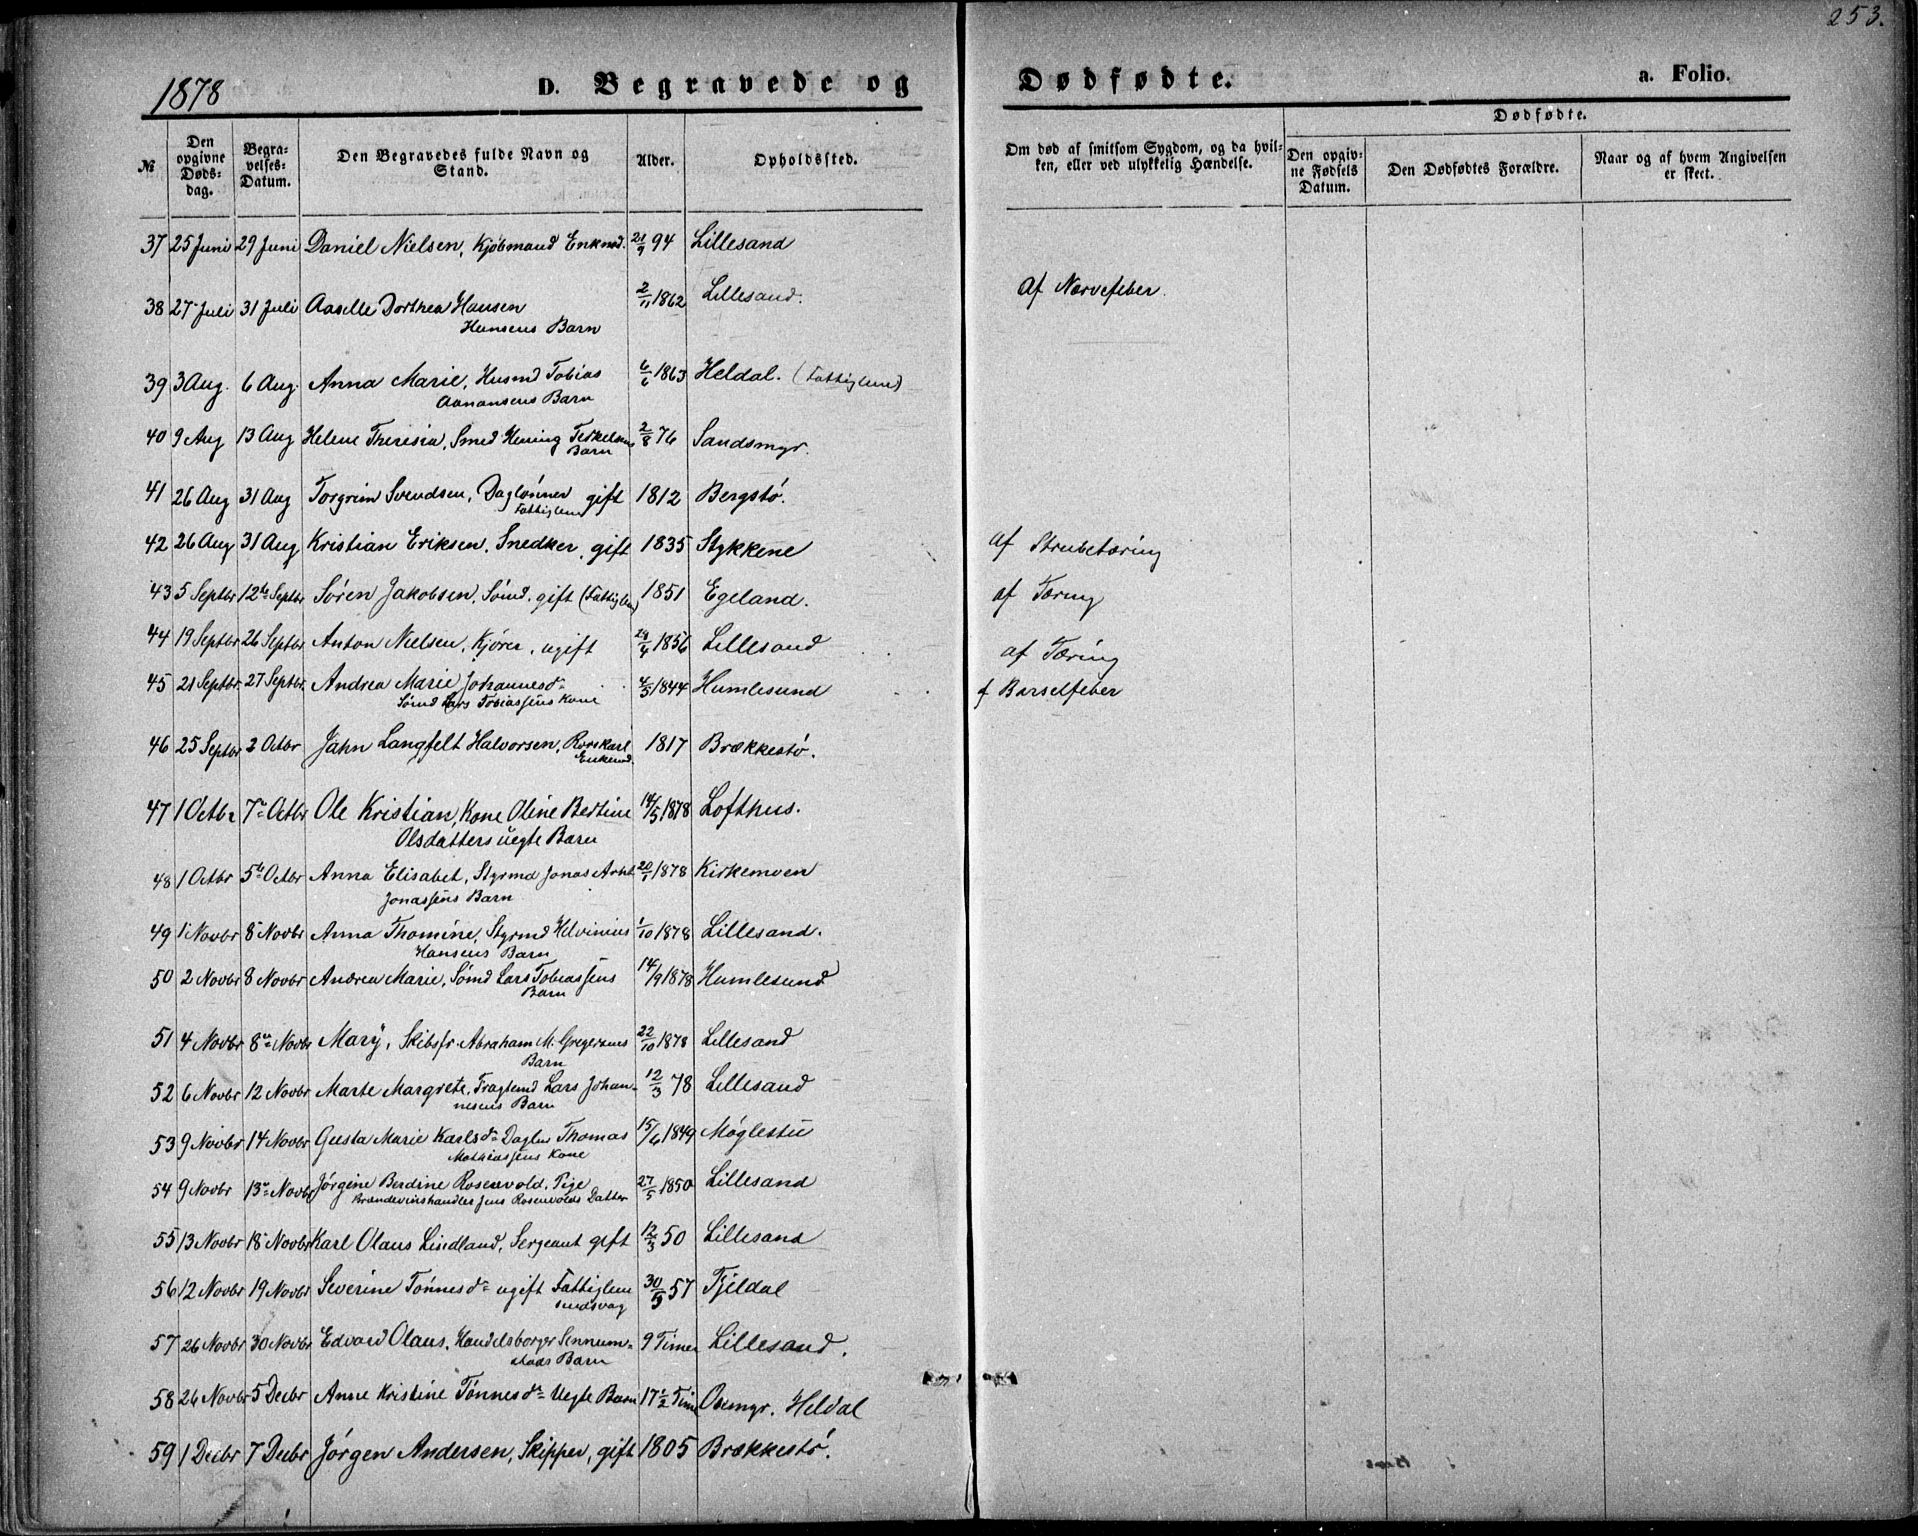 253.
1878 D. Begravede og Dødfødte. a. Folio.
№
Den opgivne Døds-dag.
Begra-velses-Datum.
Den Begravedes fulde Navn og Stand.
Alder.
Opholdssted.
Om død af smitsom Sygdom, og da hvil-
ken, eller ved ulykkelig Hændelse.
Dødfødte.
Den opgiv-ne Fødsels Datum.
Den Dødfødtes Forældre.
Naar og af hvem Angivelsen er skeet.
37 25 Juni 29 Juni Daniel Nielsen, Kjøbmand Enkmd. 21/9 94 Lillesand
38 27 Juli 31 Juli Aaselle Dorthea Hansen 2/11 1862 Lillesand. Af Nervefeber
Hansens Barn
39 3 Aug. 6 Aug. Anna Marie, Husmd Tobias 6/6 1863 Heldal. (Fattiglem)
Aanonsens Barn
40 9 Aug 13 Aug Helene Theresia, Smed Hening Terkelsens 2/8 76 Sandsmyr.
Barn
41 26 Aug 31 Aug Torgrim Svendsen, Daglønner gift 1812 Bergstø.
Fattiglem
42 26 Aug 31 Aug Kristian Eriksen, Snedker, gift 1835 Stykkene af Strubetæring
43 5 Septbr 12te Septbr Søren Jakobsen, Sømd. gift (Fattiglem) 1851 Egeland. af Tæring
44 19 Septbr 26 Septbr Anton Nielsen, Kjører, ugift 29/4 1856 Lillesand af Tæring
45 21 Septbr. 27 Septbr. Andrea Marie Johannesd- 4/5 1844 Humlesund f Barselfeber
Sømd Lars Tobiassens Kone
46 25 Septbr 2 Octbr Jahn Langfelt Halvorsen, Rorskarl 1817 Brækkestø.
Enkemd.
47 1 Octbr 7- Octbr Ole Kristian, Kone Oline Bertine 14/5 1878 Lofthus.
Olsdatters uegte Barn
48 1 Octbr 5te Octbr Anna Elisabet, Styrmd Jonas Arnt 20/1 1878 Kirkemoen
Jonassens Barn
49 1 Novbr 8 Novbr Anna Thomine, Styrmd Helvinius 1/10 1878 Lillesand.
Hansens Barn
50 2 Novbr 8 Novbr Andrea Marie, Sømd Lars Tobiassens 14/9 1878 Humlesund
Barn
51 4 Novbr 8- Novbr Mary, Skibsfr Abraham M. Gregersens 22/10 1878 Lillesand
Barn
52 6 Novbr 12 Novbr Marte Margrete, Fragtemd Lars Johan- 12/3 78 Lillesand
nesens Barn
53 9 Novbr 14 Novbr Gusta Marie Karlsd- Dagløn Thomas 15/6 1849 Møglestu
Mathiassens Kone
54 9 Novbr 13- Novbr Jørgine Berdine Rosenvold, Pige 27/5 1850 Lillesand
Brændevinshandler Jens Rosenvolds Datter
55 13 Novbr 18 Novbr Karl Olaus Lindland, Sergeant gift 12/3 50 Lillesand
56 12 Novbr 19 Novbr Severine Tønnesd- ugift Fattiglem 30/5 57 Tjeldal
sindsvag
57 26 Novbr 30 Novbr Edvard Olaus, Handelsborger Sennum- 9 Timer Lillesand.
stads Barn
58 26 Novbr 5 Decbr Anne Kristine Tønnesd- Uegte Barn 17 1/2 Time Osemyr. Heldal
59 1 Decbr 7 Decbr Jørgen Andersen, Skipper, gift 1805 Brækkestø.